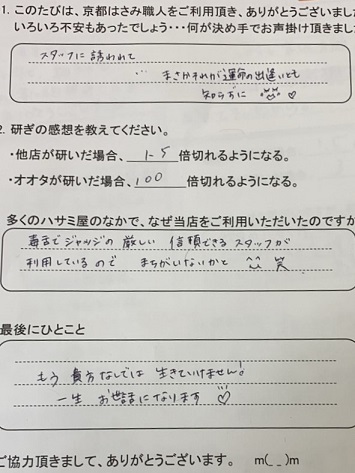 1. このたびは、京都はさみ職人をご利用頂き、ありがとうございまし
いろいろ不安もあったでしょう・・・何が決め手でお声掛け頂きまし
スタッフに誘われて
… まさかそれが運命の出逢いとも
知らずに ♡
2. 研ぎの感想を教えてください。
・他店が研いだ場合、1.5倍切れるようになる。
・オオタが研いだ場合、100倍切れるようになる。
多くのハサミ屋のなかで、なぜ当店をご利用いただいたのですか
毒舌でジャッジの厳しい 信頼できるスタッフが
利用しているので まちがいないかと 笑
最後にひとこと
もう貴方なしでは生きていけません!
一生 お世話になります ♡
ご協力頂きまして、ありがとうございます。 m(_ _)m